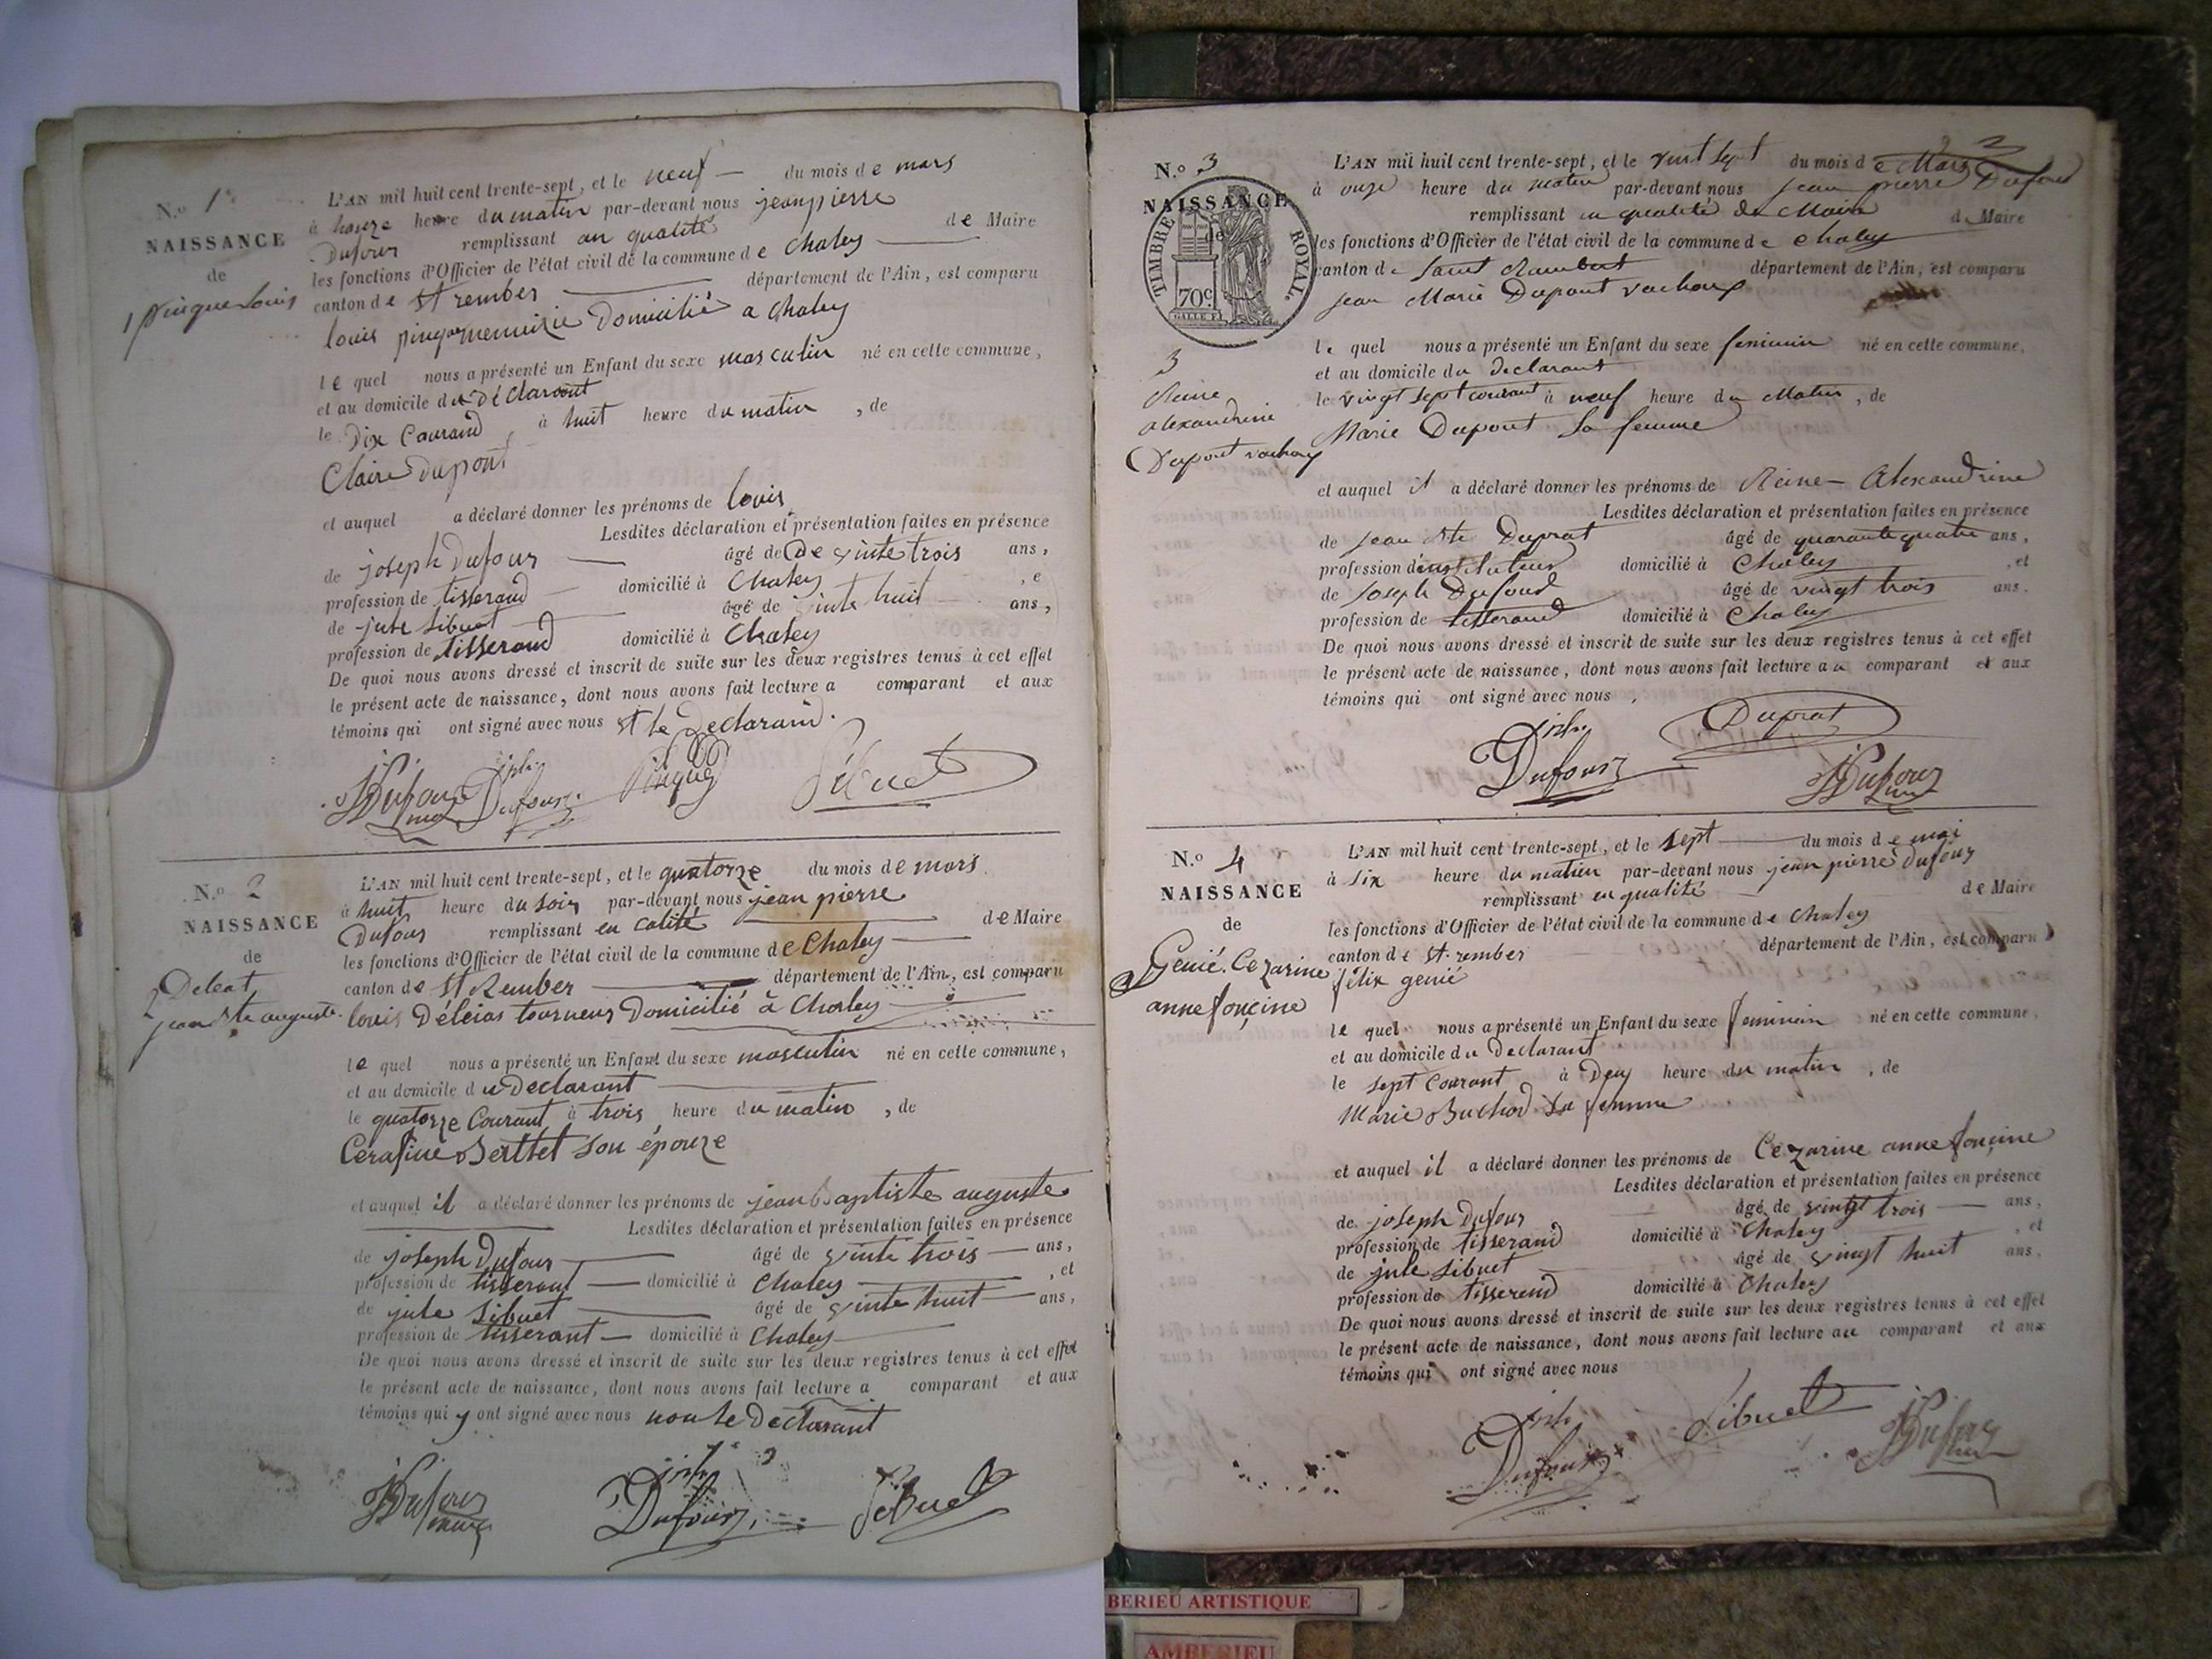 N.o 1er
NAISSANCE
de
1 pinque louis
L'AN mil huit cent trente-sept, et le neuf du mois de mars
à honze heure du matin par-devant nous jean pierre
Dufour remplissant an qualité de Maire
les fonctions d'Officier de l'état civil de la commune de Chaley
canton de St rember département de l'Ain, est comparu
louis pinque menuizie Domicilié a Chaley
le quel nous a présenté un Enfant du sexe masculin né en cette commune,
et au domicile du Déclarant
le Dix Courand, à huit heure du matin, de
Claire Dupont
et auquel a déclaré donner les prénoms de louis
Lesdites déclaration et présentation faites en présence
de joseph Dufour âgé de De vinte trois ans,
profession de tisserand domicilié à Chaley, e
de jule Sibuet âgé de vinte huit ans,
profession de tisserand domicilié à Chaley
De quoi nous avons dressé et inscrit de suite sur les deux registres tenus à cet effet
le présent acte de naissance, dont nous avons fait lecture a comparant et aux
témoins qui ont signé avec nous et le Declarand.
JP Dufour jph. Dufour pinque Sibuet
N.o 2
NAISSANCE
de
2 Deleat
jean Bte auguste.
L'AN mil huit cent trente-sept, et le quatorze du mois de mars.
à huit heure du soir par-devant nous jean pierre
Dufour remplissant en calité de Maire
les fonctions d'Officier de l'état civil de la commune de Chaley
canton de St Rember département de l'Ain, est comparu
louis Deleias tourneur Domicilié à Chaley
le quel nous a présenté un Enfant du sexe masculin né en cette commune,
et au domicile du Declarant
le quatorze Courant à trois heure du matin, de
Cerafine Berttet son épouze
et auquel il a déclaré donner les prénoms de jean baptiste auguste
Lesdites déclaration et présentation faites en présence
de joseph Dufour âgé de vinte trois ans,
profession de tisserant domicilié à Chaley, et
de jule Sibuet âgé de vinte huit ans,
profession de tisserant domicilié à Chaley
De quoi nous avons dressé et inscrit de suite sur les deux registres tenus à cet effet
le présent acte de naissance, dont nous avons fait lecture a comparant et aux
témoins qui y ont signé avec nous non le Declarant
JP Dufour jph. Dufour Sibuet
3
N.o 3
NAISSANCE
de
TIMBRE ROYAL.
70c
3
Reine
alexandrine
Dupont vachoy
L'AN mil huit cent trente-sept, et le vint sept du mois de Mars
à onze heure du matin par-devant nous jean pierre Dufour
remplissant en qualité de Maire de Maire
les fonctions d'Officier de l'état civil de la commune de Chaley
canton de Saint Rambert département de l'Ain, est comparu
jean Marie Dupont vachoux
le quel nous a présenté un Enfant du sexe feminin né en cette commune,
et au domicile du Declarant
le vingt sept courant à neuf heure du Matin, de
Marie Dupont Sa femme
et auquel il a déclaré donner les prénoms de Reine - Alexandrine
Lesdites déclaration et présentation faites en présence
de jean Bte Duprat âgé de quarante quatre ans,
profession d'instituteur domicilié à Chaley, et
de Joseph Dufour âgé de vingt trois ans.
profession de tisserand domicilié à Chaley
De quoi nous avons dressé et inscrit de suite sur les deux registres tenus à cet effet
le présent acte de naissance, dont nous avons fait lecture au comparant et aux
témoins qui ont signé avec nous.
jph. Dufour Duprat JP Dufour
N.o 4
NAISSANCE
de
Genié. Cezarine
anne fonçine
L'AN mil huit cent trente-sept, et le sept du mois de mai
à six heure du matin par-devant nous jean pierre Dufour
remplissant en qualité de Maire
les fonctions d'Officier de l'état civil de la commune de Chaley
canton de St. rember département de l'Ain, est comparu
félix genié
le quel nous a présenté un Enfant du sexe feminin né en cette commune,
et au domicile du Declarant
le sept Courant à Deux heure du matin, de
Marie Buchod Sa femme
et auquel il a déclaré donner les prénoms de Cezarine anne fonçine
Lesdites déclaration et présentation faites en présence
de joseph Dufour âgé de vingt trois ans,
profession de tisserand domicilié à Chaley, et
de jule Sibuet âgé de vingt huit ans,
profession de tisserend domicilié à Chaley
De quoi nous avons dressé et inscrit de suite sur les deux registres tenus à cet effet
le présent acte de naissance, dont nous avons fait lecture au comparant et aux
témoins qui ont signé avec nous
jph. Dufour Sibuet JP Dufour
BERIEU ARTISTIQUE
AMBERIEU